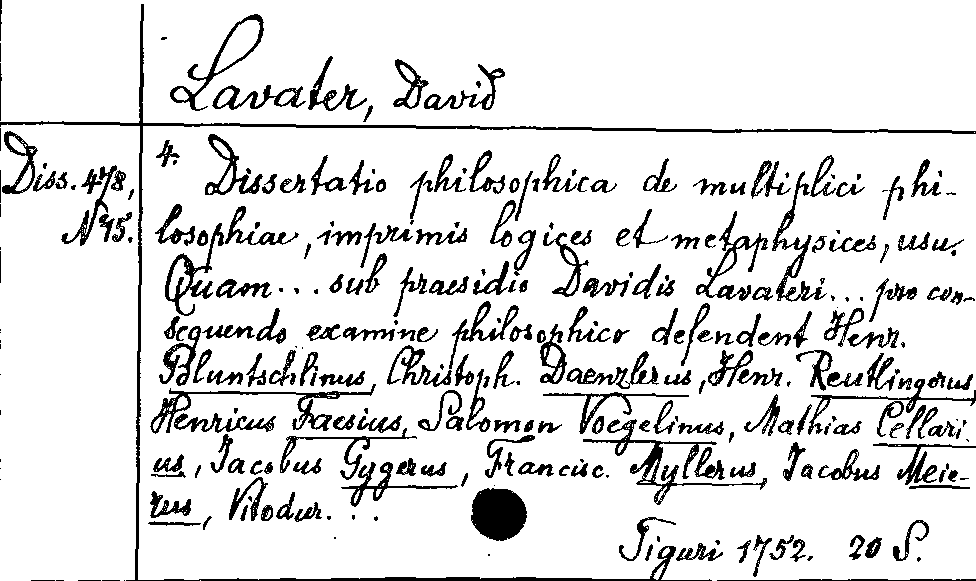 Lavater, David
Diss. 478,
N° 15.
4. Dissertatio philosophica de multiplici phi-
losophiae, imprimis logices et metaphysices, usu.
Quam... sub praesidio Davidis Lavateri... pro con-
sequendo examine philosophico defendent Henr.
Bluntschlinus, Christoph. Daenzlerus, Henr. Reutlingerus,
Henricus Faesius, Salomon Voegelinus, Mathias Cellari-
us, Jacobus Gygerus, Francisc. Myllerus, Jacobus Meie-
rus, Vitodur...
Tiguri 1752. 20 S.